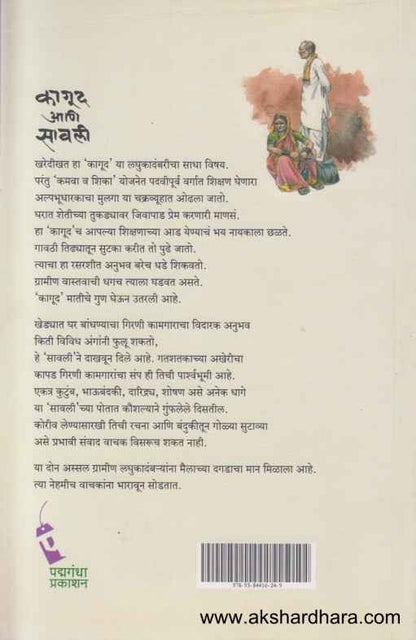 कागूद
आणि
सावली
खरेदीखत हा 'कागूद' या लघुकादंबरीचा साधा विषय.
परंतु 'कमवा व शिका' योजनेत पदवीपूर्व वर्गात शिक्षण घेणारा
अल्पभूधारकाचा मुलगा या चक्रव्यूहात ओढला जातो.
घरात शेतीच्या तुकड्यावर जिवापाड प्रेम करणारी माणसं.
हा 'कागूद'च आपल्या शिक्षणाच्या आड येण्याचं भय नायकाला छळते.
गावठी तिढ्यातून सुटका करीत तो पुढे जातो.
त्याचा हा रसरशीत अनुभव बरेच धडे शिकवतो.
ग्रामीण वास्तवाची धगच त्याला घडवत असते.
'कागूद' मातीचे गुण घेऊन उतरली आहे.
खेड्यात घर बांधण्याचा गिरणी कामगाराचा विदारक अनुभव
किती विविध अंगांनी फुलू शकतो,
हे 'सावली'ने दाखवून दिले आहे. गतशतकाच्या अखेरीचा
कापड गिरणी कामगारांचा संप ही तिची पार्श्वभूमी आहे.
एकत्र कुटुंब, भाऊबंदकी, दारिद्र्य, शोषण असे अनेक धागे
या 'सावली'च्या पोतात कौशल्याने गुंफलेले दिसतील.
कोरीव लेण्यासारखी तिची रचना आणि बंदुकीतून गोळ्या सुटाव्या
असे प्रभावी संवाद वाचक विसरूच शकत नाही.
या दोन अस्सल ग्रामीण लघुकादंबऱ्यांना मैलाच्या दगडाचा मान मिळाला आहे.
त्या नेहमीच वाचकांना भारावून सोडतात.
पद्मगंधा
प्रकाशन
978-93-84416-24-9
www.akshardhara.com